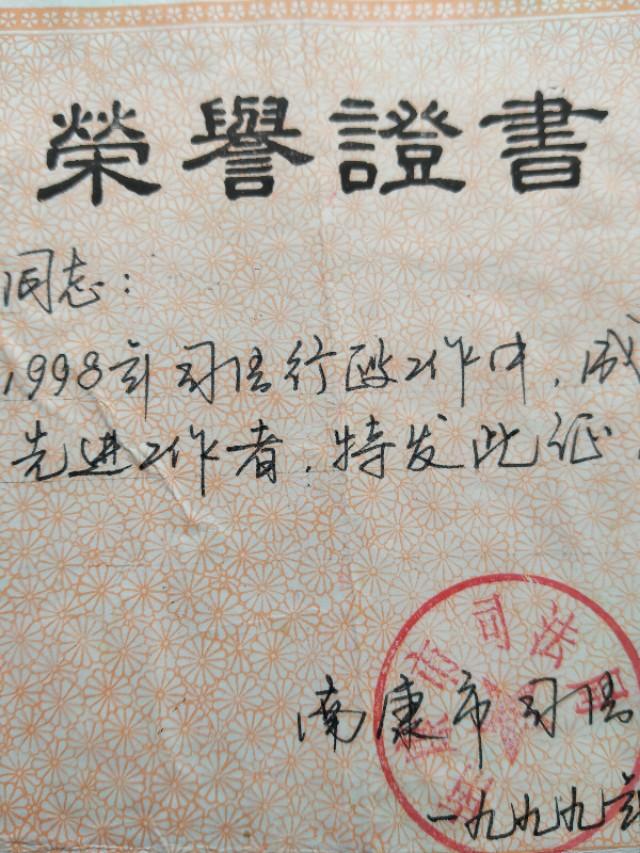 榮譽證書
同志：
1998年司法行政工作中，成
先进工作者，特发此证
南康市司法
一九九九年
南康市司法局